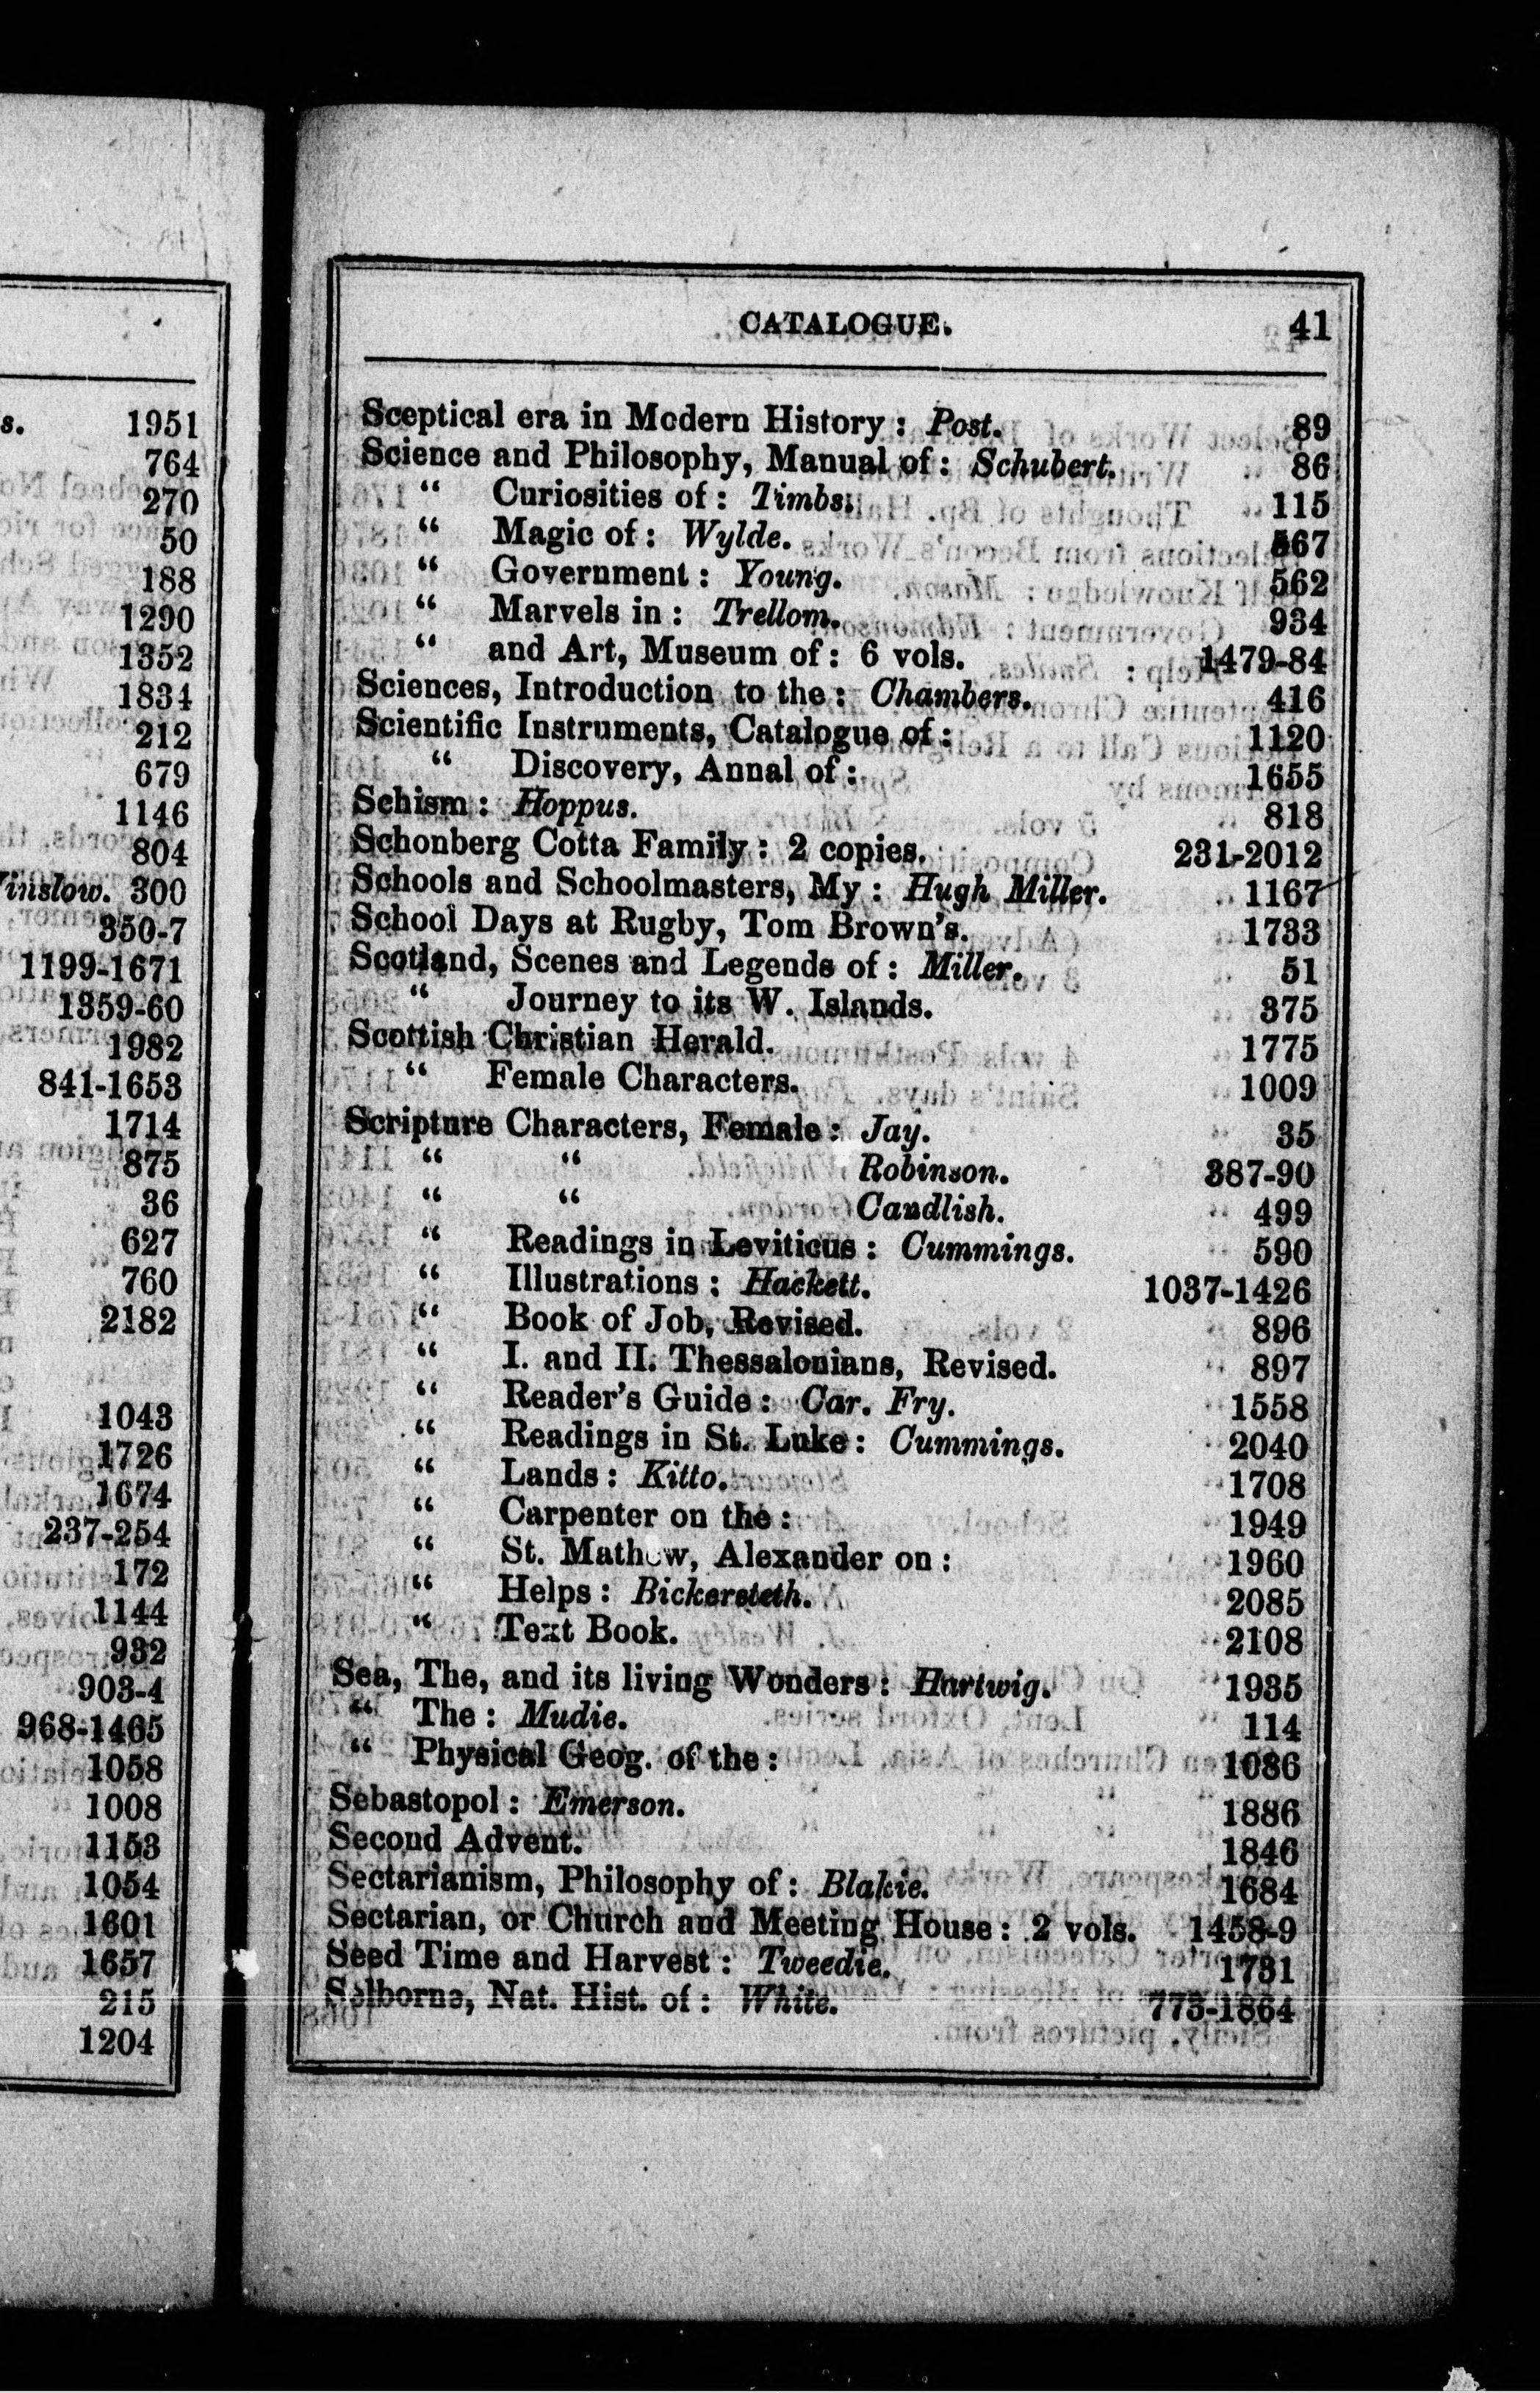 s. 1951
764
270
50
188
1290
1352
1834
212
679
1146
804
inslow. 300
350-7
1199-1671
1359-60
1982
841-1653
1714
875
36
627
760
2182
1043
1726
1674
237-254
172
1144
932
903-4
968-1465
1058
1008
1153
1054
1601
1657
215
1204
CATALOGUE. 41
Sceptical era in Modern History : Post. 89
Science and Philosophy, Manual of : Schubert. 86
“ Curiosities of : Timbs. 115
“ Magic of : Wylde. 567
“ Government : Young. 562
“ Marvels in : Trellom. 934
“ and Art, Museum of : 6 vols. 1479-84
Sciences, Introduction to the : Chambers. 416
Scientific Instruments, Catalogue of : 1120
“ Discovery, Annal of : 1655
Schism : Hoppus. 818
Schonberg Cotta Family : 2 copies. 231-2012
Schools and Schoolmasters, My : Hugh Miller. 1167
School Days at Rugby, Tom Brown's. 1733
Scotland, Scenes and Legends of : Miller. 51
“ Journey to its W. Islands. 375
Scottish Christian Herald. 1775
“ Female Characters. 1009
Scripture Characters, Female : Jay. 35
“ “ Robinson. 387-90
“ “ Candlish. 499
“ Readings in Leviticus : Cummings. 590
“ Illustrations : Hackett. 1037-1426
“ Book of Job, Revised. 896
“ I. and II. Thessalonians, Revised. 897
“ Reader's Guide : Car. Fry. 1558
“ Readings in St. Luke : Cummings. 2040
“ Lands : Kitto. 1708
“ Carpenter on the : 1949
“ St. Mathew, Alexander on : 1960
“ Helps : Bickersteth. 2085
“ Text Book. 2108
Sea, The, and its living Wonders : Hartwig. 1935
“ The : Mudie. 114
“ Physical Geog. of the : 1086
Sebastopol : Emerson. 1886
Second Advent. 1846
Sectarianism, Philosophy of : Blakie. 1684
Sectarian, or Church and Meeting House : 2 vols. 1458-9
Seed Time and Harvest : Tweedie. 1731
Selborne, Nat. Hist. of : White. 773-1864